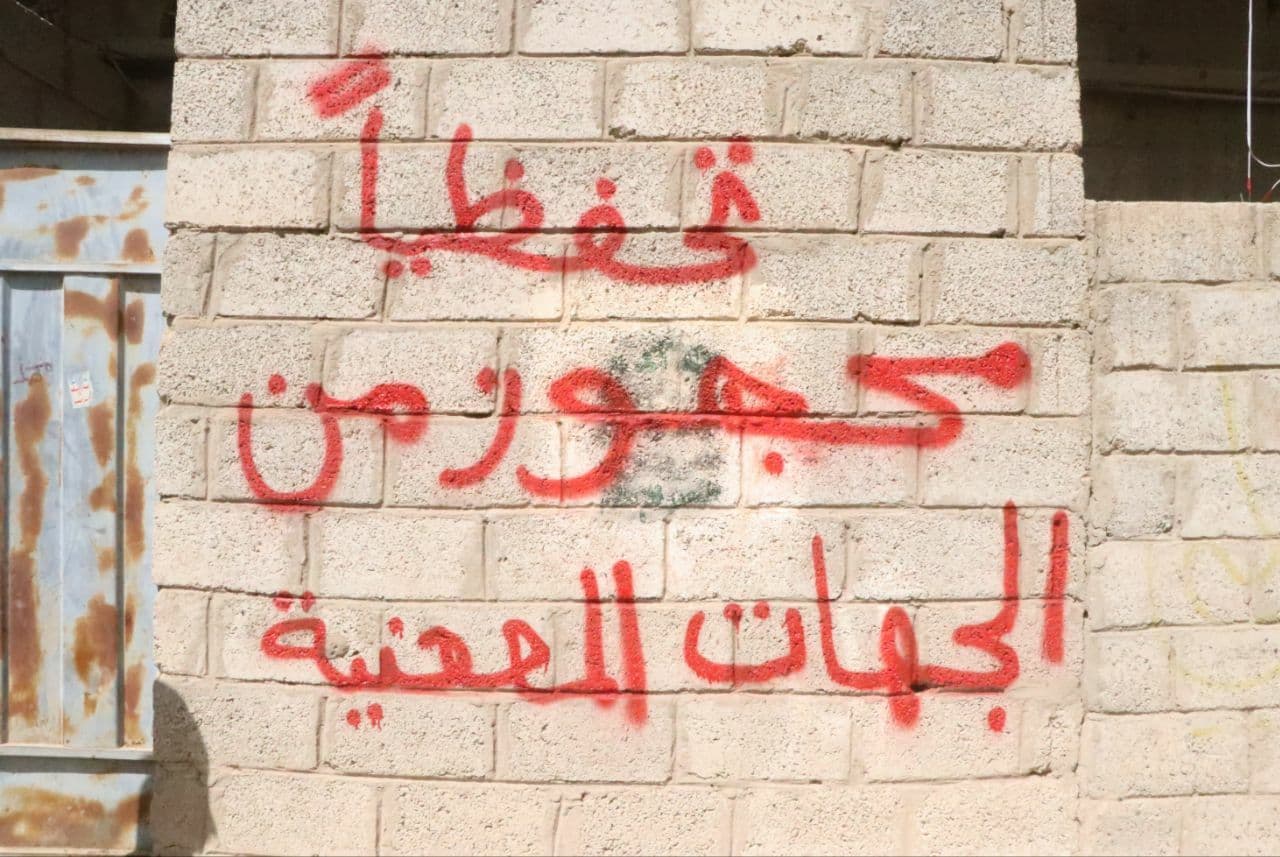 تحفظياً
محجوز من
الجهات المعنية